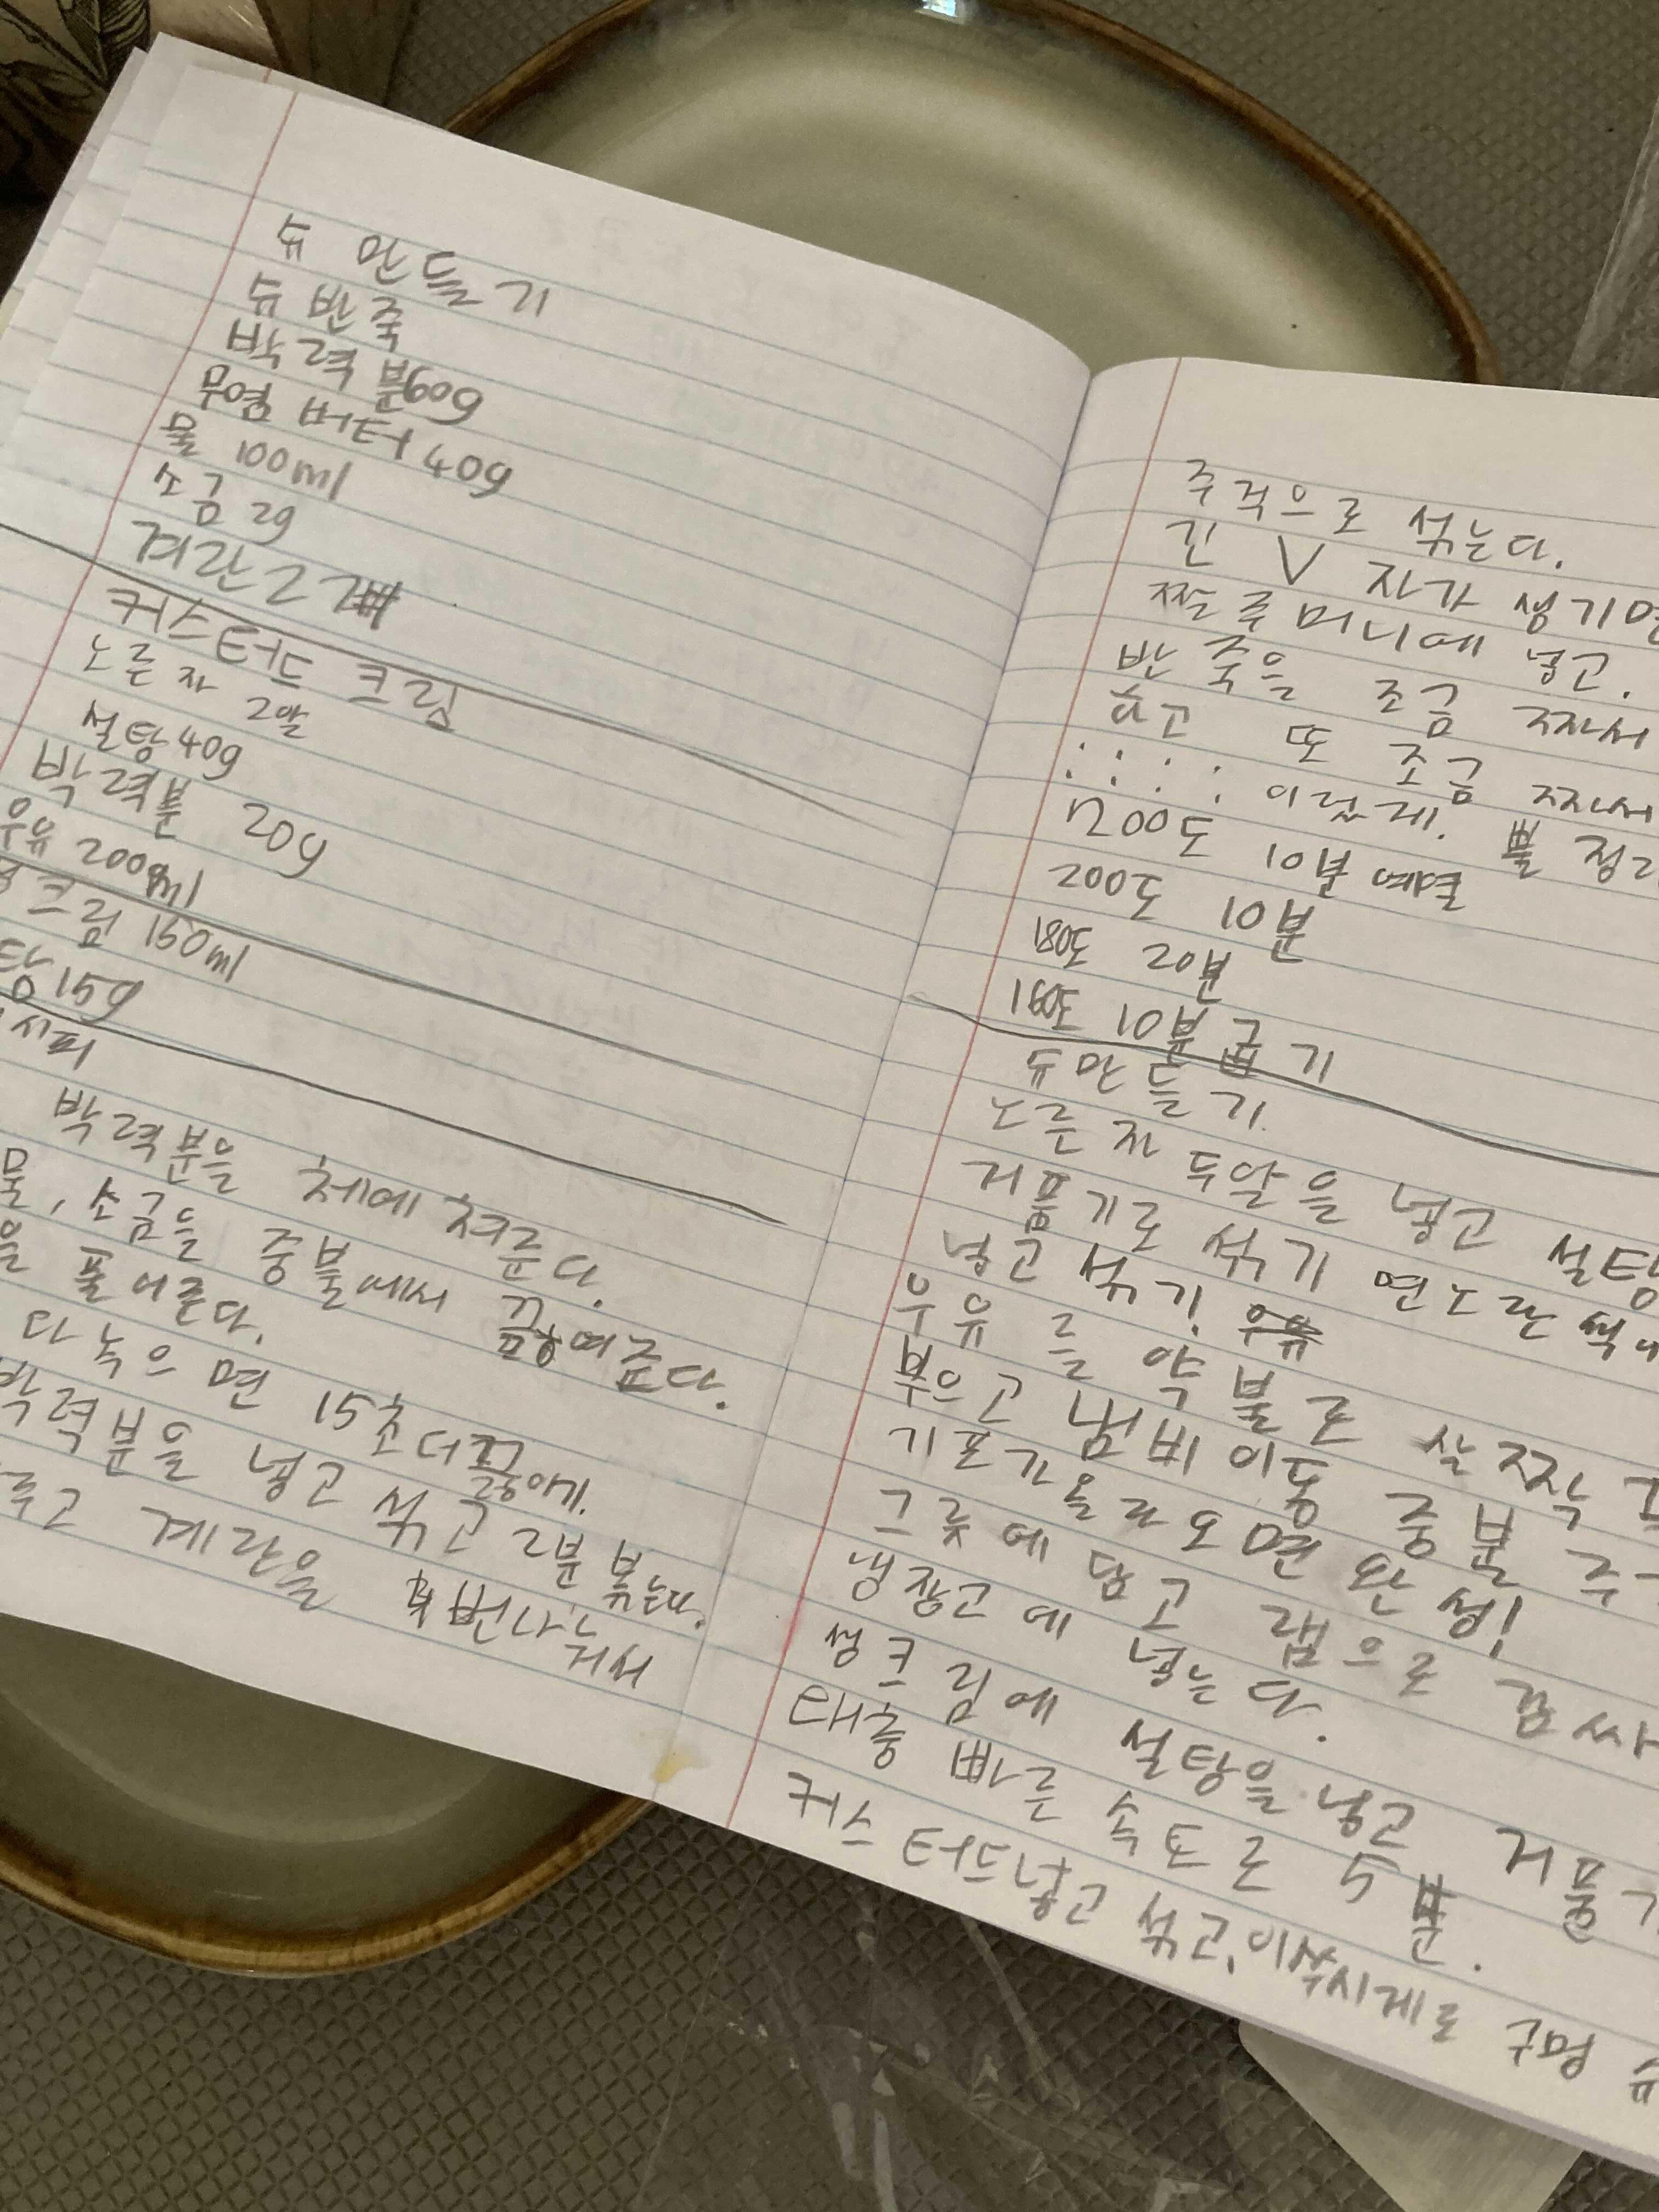 슈 만들기
슈 반죽
박력분60g
무염 버터 40g
물 100ml
소금 2g
계란 2개
커스타드 크림
노른자 2알
설탕 40g
박력분 20g
우유 200ml
크림 150ml
탕 15g
시피
박력분을 체에 쳐준다.
물, 소금을 중불에서 끓여준다.
을 풀어준다.
다 녹으면 15초 더 끓애기.
박력분을 넣고 섞고 2분 볶는다.
계란을 번 나눠서
주걱으로 섞는다.
긴 V 자가 생기면
짤주머니에 넣고.
반죽을 조금 짜서
고 또 조금 짜서
이렇게.
200도 10분 예열
200도 10분
180도 20분
160도 10분 굽기
슈만들기
노른자 두알을 넣고 설탕
거품기로 섞기 면 노란색
넣고 섞기.
우유를 약불로 살짝
부으고 냄비이동 중불
기포가 올라오면 완성!
그릇에 담고 랩으로 감싸
냉장고에 넣는다.
생크림에 설탕을 넣고 거품기
대충 빠른 속도로 5분.
커스타드 넣고 섞고, 이쑤시게로 구멍 슈